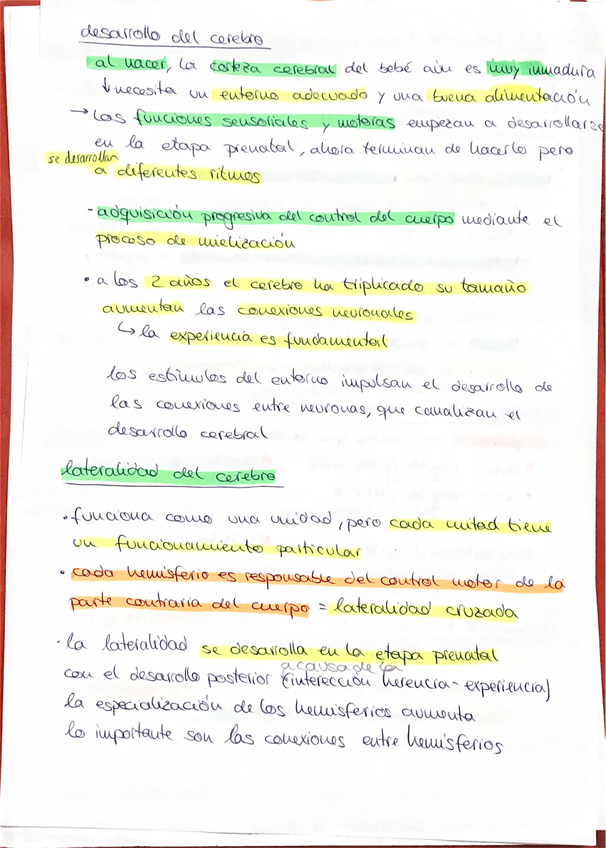 desarrollo del cerebro
al nacer, la corteza cerebral del bebé aún es muy inmadura
↓ necesita un entorno adecuado y una buena alimentación
→ Las funciones sensoriales y motoras empezan a desarrollarse
en la etapa prenatal, ahora terminan de hacerlo pero
se desarrollan
a diferentes ritmos
- adquisición progresiva del control del cuerpo mediante el
proceso de mielización
• a los 2 años el cerebro ha triplicado su tamaño
aumentan las conexiones neuronales
↳ la experiencia es fundamental
los estímulos del entorno impulsan el desarrollo de
las conexiones entre neuronas, que canalizan el
desarrollo cerebral
lateralidad del cerebro
• funciona como una unidad, pero cada mitad tiene
un funcionamiento particular
• cada hemisferio es responsable del control motor de la
parte contraria del cuerpo = lateralidad cruzada
• la lateralidad se desarrolla en la etapa prenatal
a causa de la
con el desarrollo posterior (interección herencia - experiencia)
la especialización de los hemisferios aumenta
lo importante son las conexiones entre hemisferios